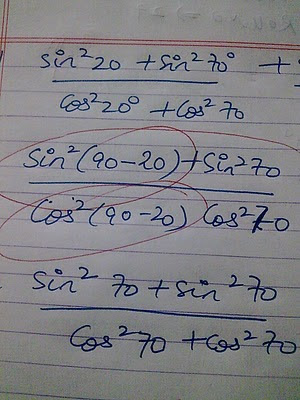 sin²20 + sin²70° +
cos²20° + cos²70
sin²(90-20) + sin²70
cos²(90-20) cos²70
sin² 70 + sin² 70
cos²70 + cos²70